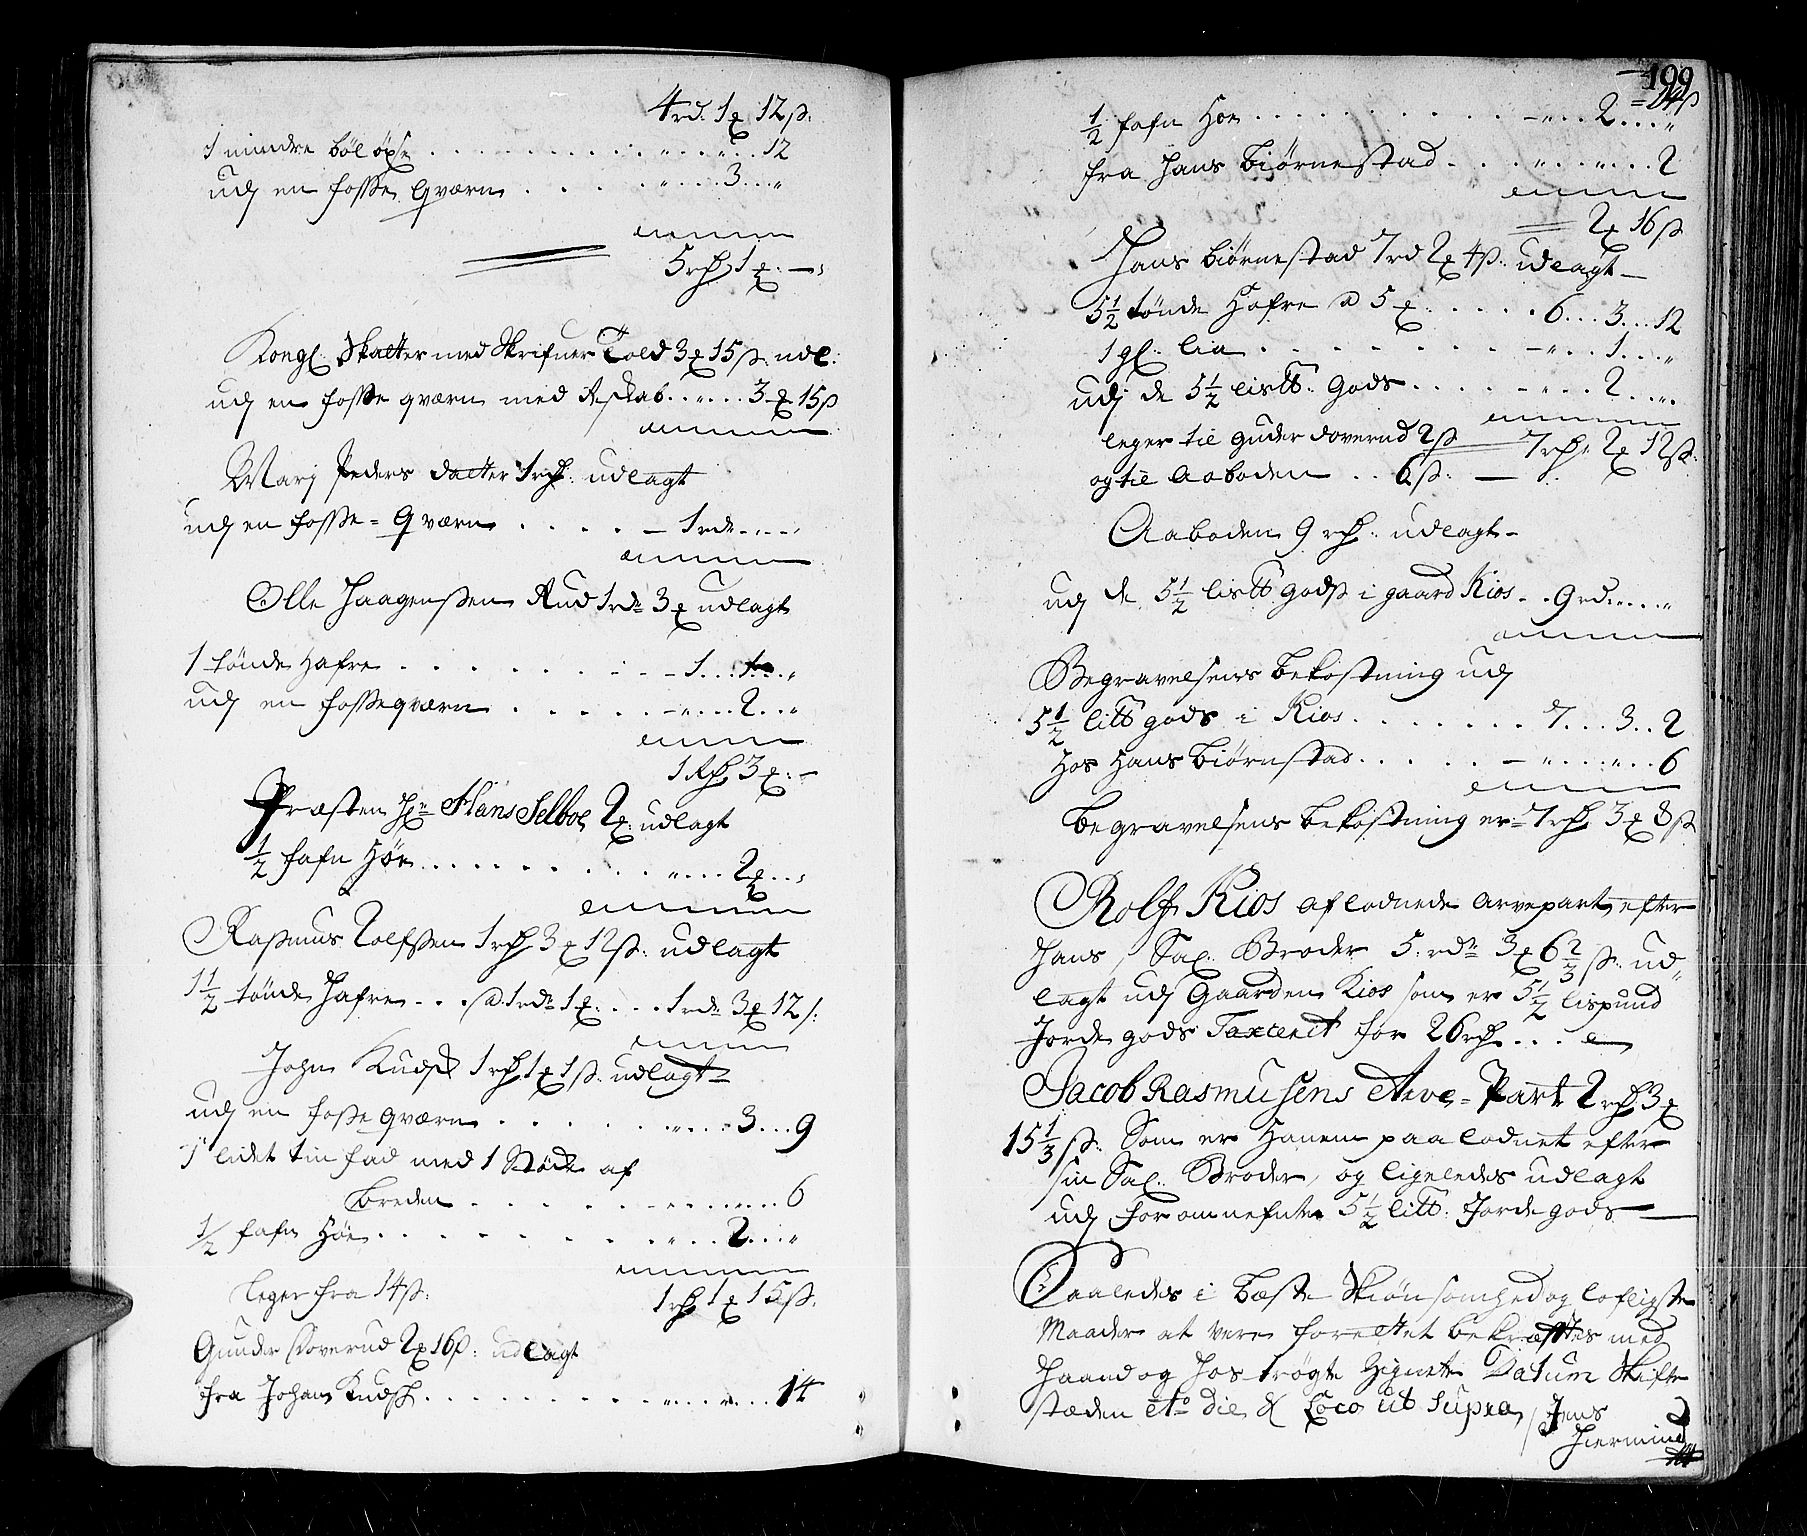 4 rd. 1 ℥ 12 ß.
1 mindre böl öxe . . . . . . . . 12
udj en fosse qværn . . . . . 3 . . „
5 rh 1 ℥. —
Kongl. Skatter med Skrifner Told 3 ℥ 15 ß. udl.
udj en fosse qværn med Reskab . . „ . . 3 ℥ 15 ß
Marj Peders datter 1 rh. udlagt
udj en fosse = qværn . . . . — 1 rdr . . .
Olle Haagenssen Rud 1 rdr 3 ℥ udlagt
1 tönde Hafre . . . . . . . — 1 . . 1 . . „
udj en fosse qværn . . . . . — „ . . 2 . . „
1 Rh 3 ℥. —
Præsten Hr Hans Selboe 2 ℥. udlagt
½ fafn Höe . . . . . . . „ . . 2 ℥ . .
Rasmus Rolfssen 1 rh 3 ℥ 12 ß. udlagt
1½ tönde Hafre . . a 1 rdr 1 ℥. . . . 1 rdr 3 ℥ 12 ß.
John 1 rh 1 ℥ 1 ß. udlagt
udj en fosse qværn . . . . . . „ . . 3 . . 9
1 lidet tin fad med 1 Stöck af
breden . . . . . . . . . . 6
½ fafn Höe . . . . . . . „ . . 2 . . „
leger fra 14 ß. 1 rh 1 ℥ 15 ß.
Gunder Doverud 2 ℥ 16 ß. udlagt
fra Johan . . . . . . . . „ . . „ . . 14
199
= 14 ß
½ fafn Höe . . . . . . . . — „ . . 2 . . „
fra Hans Biörnestad . . . „ . . „ . . 2
2 ℥ 16 ß
Hans Biörnestad 7 rd 2 ℥ 4 ß. udlagt —
5½ tönde Hafre a 5 ℥ . . . . 6 . . 3 . . 12
1 gl. lia . . . . . . . . — „ . . 1 . . „
udj de 5½ lis℔. Gods . . . . — „ . . 2 . . „
leger til Guder Doverud 2 ß — 7 rh. 2 ℥ 12 ß.
og til Aaboden . . 6 ß. —
Aaboden 9 rh. udlagt —
udj de 5½ lis℔ godß i gaard Kios . . 9 rd . . . .
Begravelsens bekostning udj
5½ li℔ gods i Kios . . . . . . . 7 . . 3 . . 2
Hos Hans Biörnstad . . . . . — „ . . „ . . 6
begravelsens bekostning er 7 rh 3 ℥ 8 ß
Rolf Kios aflodnede arvepart efter
Hans Sal. Broder 5 rdr 3 ℥ 6⅔ ß. ud=
lagt udj Gaarden Kios som er 5½ lispund
Jorde gods Taxceret for 26 rh . . .
Jacob Rasmusens Arve = Part 2 rh 3 ℥
15⅓ ß. Som er Hanem paalodnet efter
sin Sal. Broder, og ligeledes udlagt
udj foromnefnte 5½ li℔. Jorde gods —
Saaledes i bæste Skiönsomhed og lofligste
Maader at vere forrettet bekræfftes med
Haand og hos trögte Zignete Datum Skifte
stæden Ao die & Loco ut Supra, Jens
Hiermind